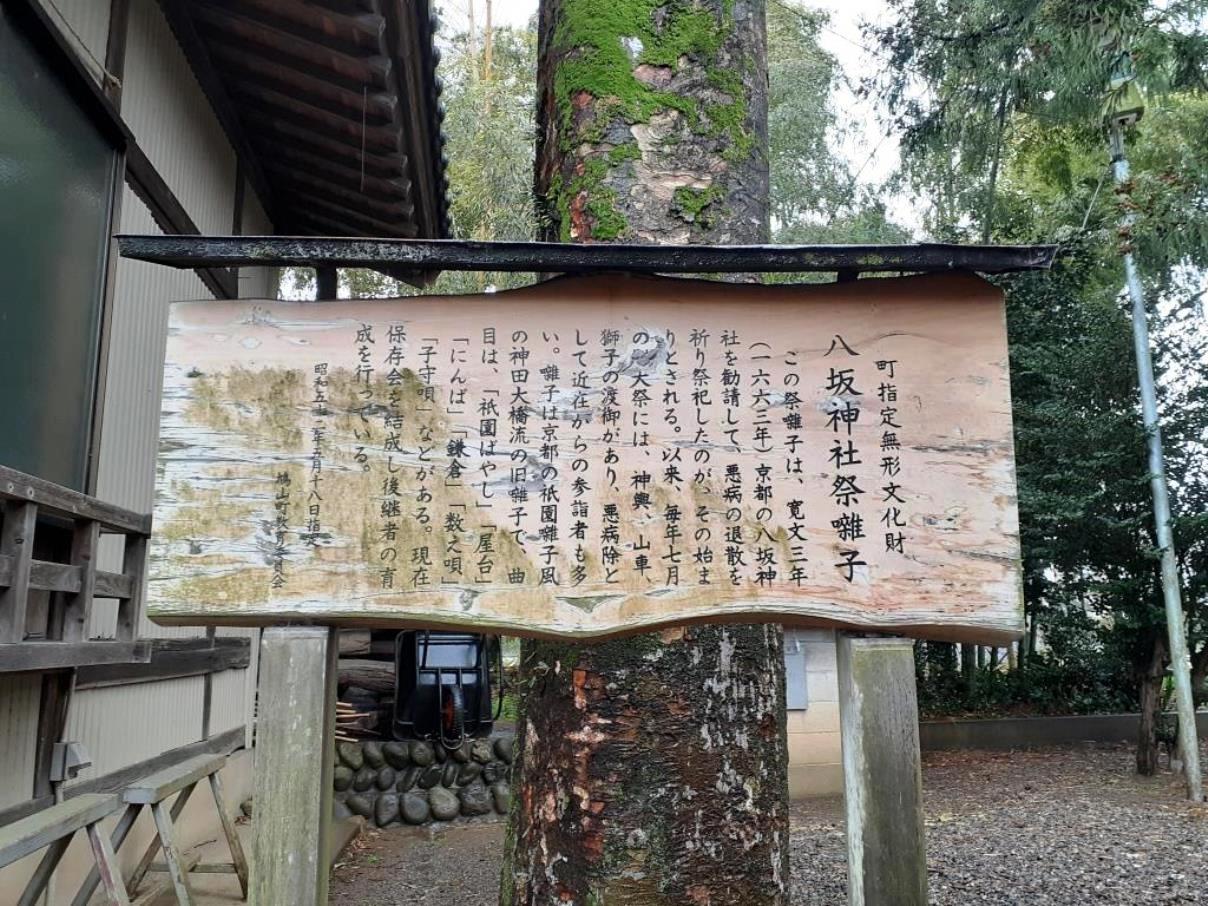 町指定無形文化財
八坂神社祭囃子
この祭囃子は、寛文三年
(一六六三年)京都の八坂神
社を勧請して、悪病の退散を
祈り祭祀したのが、その始ま
りとされる。以来、毎年七月
の大祭には、神輿、山車、
獅子の渡御があり、悪病除と
して近住からの参詣者も多
い。囃子は京都の祇園囃子風
の神田大橋流の旧囃子で、曲
目は、「祇園ばやし」「屋台」
「にんば」「鎌倉」「数え唄」
「子守唄」などがある。現在
保存会を結成し後継者の育
成を行っている。
昭和五十二年五月十八日指定
鳩山町教育委員会